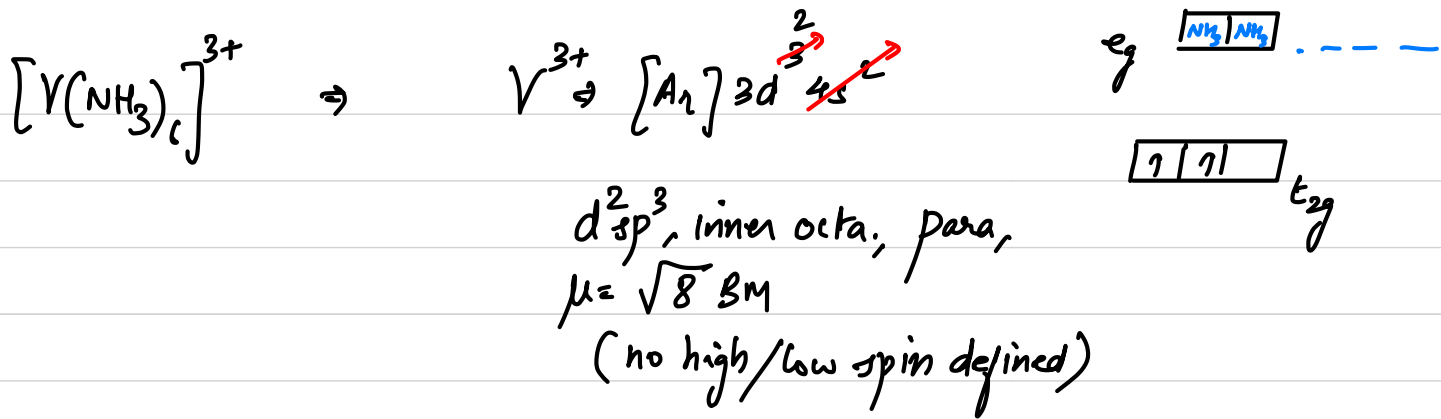 [V(NH₃)₆]³⁺ ⇒ V³⁺ ⇒ [Ar] 3d³ ² 4s² e_g NH₃ NH₃ . - - - -
1 1 t₂g
d²sp³, inner octa., para,
μ = √8 BM
(no high/low spin defined)